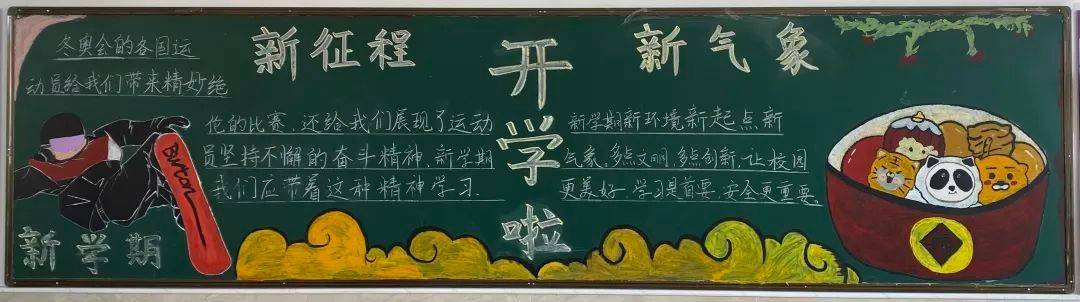 新征程
开学啦
新气象
冬奥会的各国运
动员给我们带来精妙绝
伦的比赛,还给我们展现了运动
员坚持不懈的奋斗精神,新学期
我们应带着这种精神学习.
新学期新环境新起点新
气象、多点文明、多点创新、让校园
更美好 学习是首要 安全更重要。
Burton
新学期